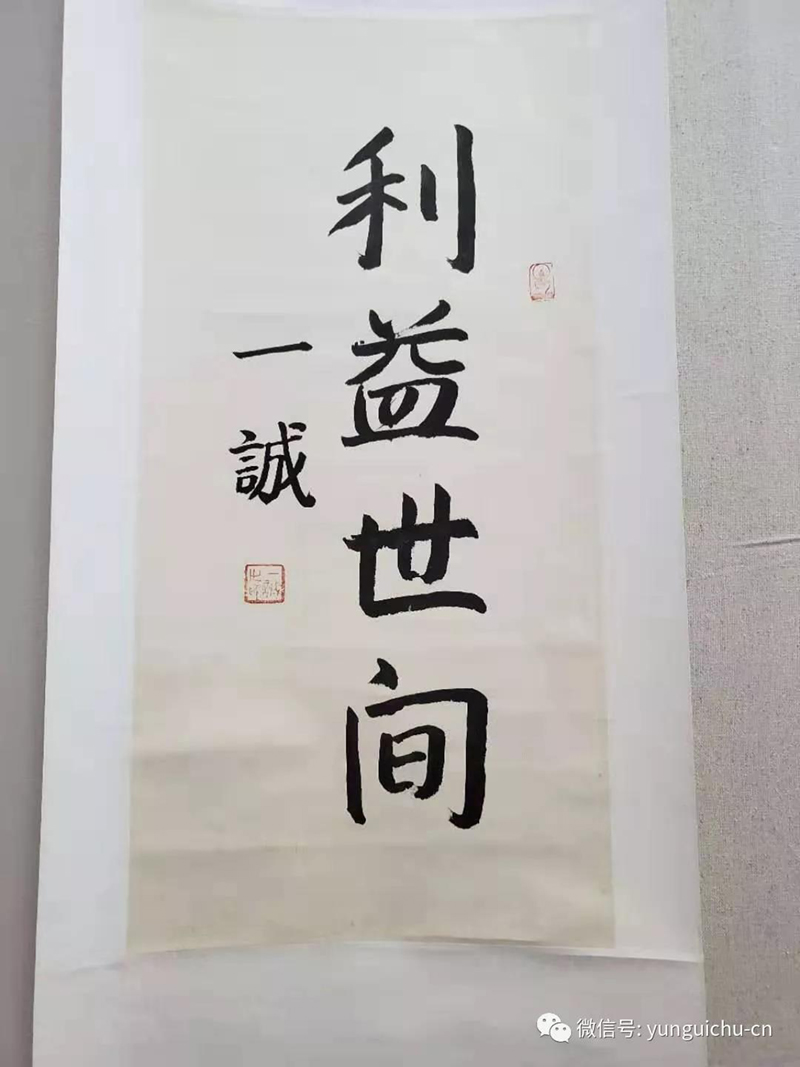 利益世间
一誠
微信号: yunguichu-cn